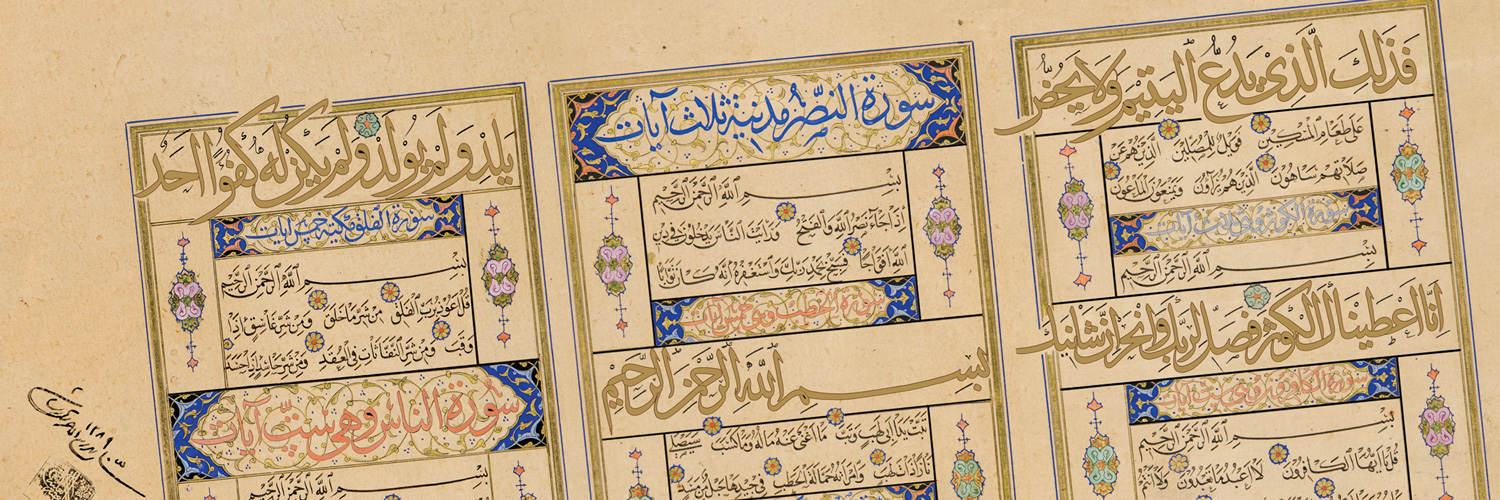 فَذَلِكَ الَّذِي يَدُعُّ الْيَتِيمَ وَلَا يَحُضُّ
عَلَى طَعَامِ الْمِسْكِينِ فَوَيْلٌ لِلْمُصَلِّينَ الَّذِينَ هُمْ عَنْ
صَلَاتِهِمْ سَاهُونَ الَّذِينَ هُمْ يُرَآؤُنَ وَيَمْنَعُونَ الْمَاعُونَ
سورة الكوثر وهي ثلاث آيات
بِسْمِ اللَّهِ الرَّحْمَنِ الرَّحِيمِ
إِنَّا أَعْطَيْنَاكَ الْكَوْثَرَ فَصَلِّ لِرَبِّكَ وَانْحَرْ إِنَّ شَانِئَكَ
بِسْمِ اللَّهِ الرَّحْمَنِ الرَّحِيمِ
قُلْ يَا أَيُّهَا الْكَافِرُونَ لَا أَعْبُدُ مَا تَعْبُدُونَ وَلَا أَنْتُمْ
سورة النصر مدنية ثلاث آيات
بِسْمِ اللَّهِ الرَّحْمَنِ الرَّحِيمِ
إِذَا جَاءَ نَصْرُ اللَّهِ وَالْفَتْحُ وَرَأَيْتَ النَّاسَ يَدْخُلُونَ فِي دِينِ
اللَّهِ أَفْوَاجًا فَسَبِّحْ بِحَمْدِ رَبِّكَ وَاسْتَغْفِرْهُ إِنَّهُ كَانَ تَوَّابًا
بِسْمِ اللَّهِ الرَّحْمَنِ الرَّحِيمِ
تَبَّتْ يَدَا أَبِي لَهَبٍ وَتَبَّ مَا أَغْنَى عَنْهُ مَالُهُ وَمَا كَسَبَ سَيَصْلَى
نَارًا ذَاتَ لَهَبٍ وَامْرَأَتُهُ حَمَّالَةَ الْحَطَبِ فِي جِيدِهَا حَبْلٌ مِنْ
يَلِدْ وَلَمْ يُولَدْ وَلَمْ يَكُنْ لَهُ كُفُوًا أَحَدٌ
سورة الفلق مكية خمس آيات
بِسْمِ اللَّهِ الرَّحْمَنِ الرَّحِيمِ
قُلْ أَعُوذُ بِرَبِّ الْفَلَقِ مِنْ شَرِّ مَا خَلَقَ وَمِنْ شَرِّ غَاسِقٍ إِذَا
وَقَبَ وَمِنْ شَرِّ النَّفَّاثَاتِ فِي الْعُقَدِ وَمِنْ شَرِّ حَاسِدٍ إِذَا حَسَدَ
سورة الناس وهي ست آيات
بِسْمِ اللَّهِ الرَّحْمَنِ الرَّحِيمِ
١٢٨٩